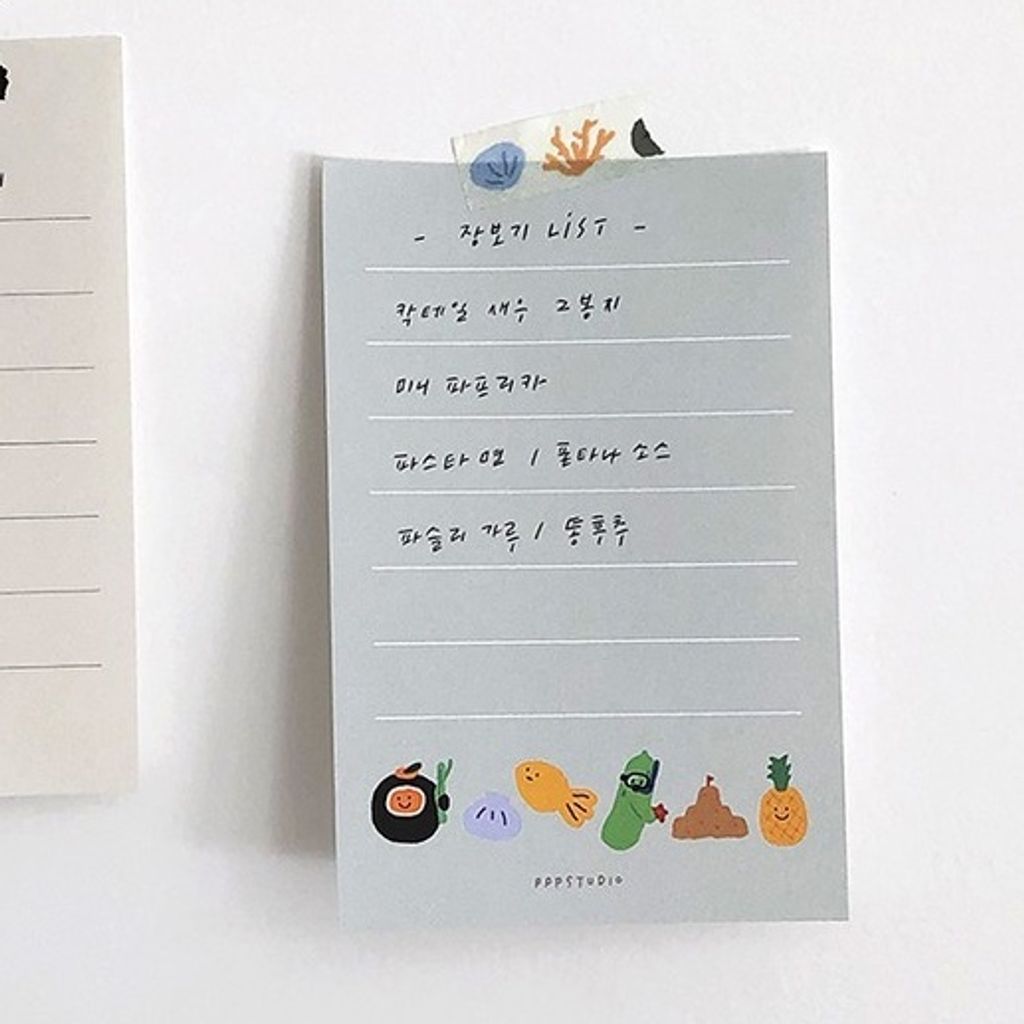 - 장보기 LIST -
칵테일 새우 2봉지
미니 파프리카
파스타면 / 폴타나 소스
파슬리 가루 / 통후추
PPPSTUDIO